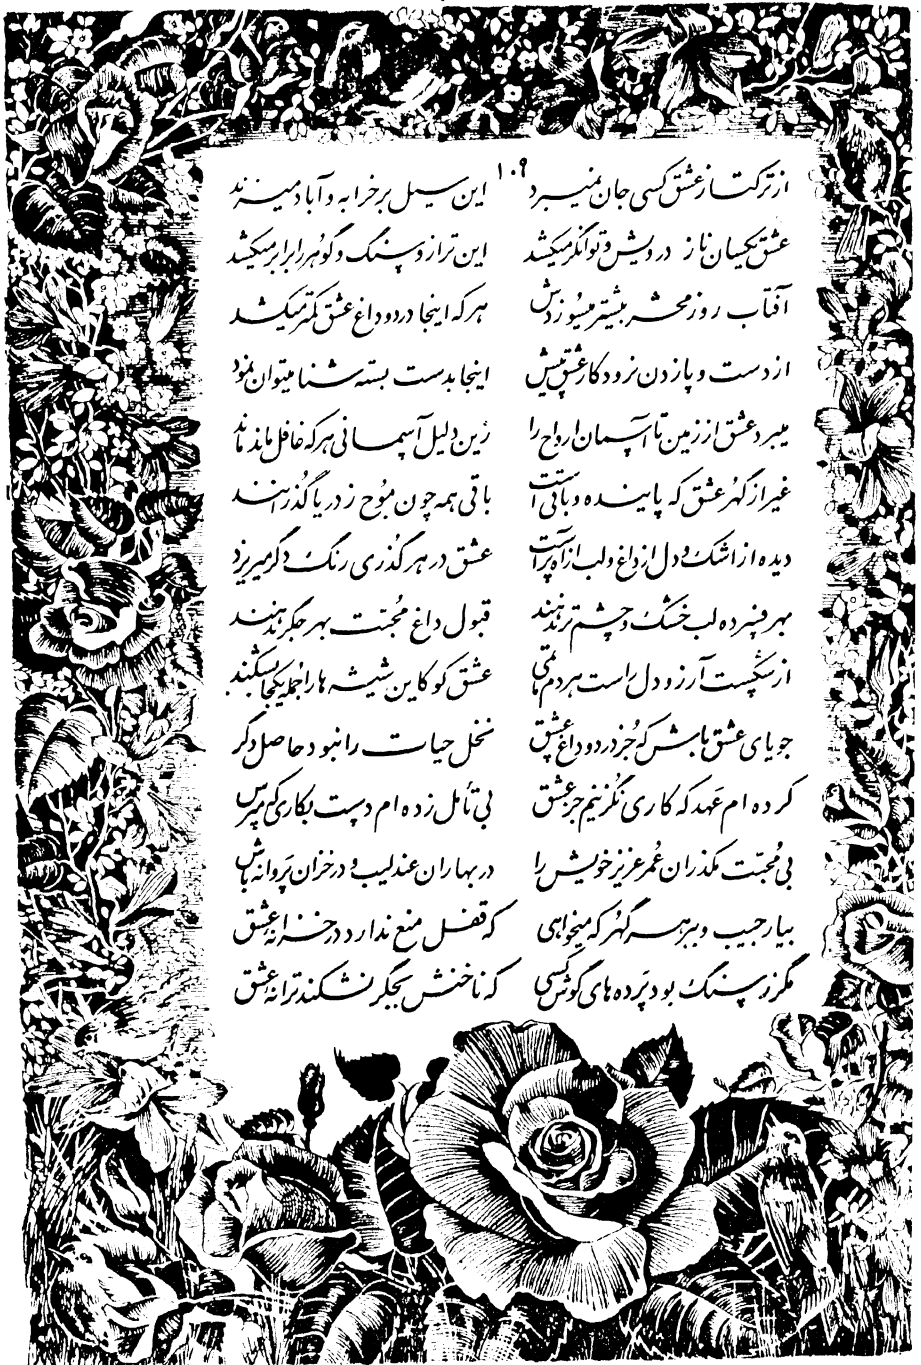 ۱۰۹
از ترکتاز عشق کسی جان نمیبرد این سیل بر خرابه و آباد میزند
عشق یکسان ناز درویش و توانگر میکشد این ترازو سنگ و گوهر را برابر میکشد
آفتاب روز محشر بیشتر میسوزدش هر که اینجا درد و داغ عشق کمتر میکشد
از دست و پا زدن نرود کار عشق پیش اینجا بدست بسته شنا میتوان نمود
میبرد عشق از زمین تا آسمان ارواح را زین دلیل آسمانی هر که غافل ماند ماند
غیر از گهر عشق که پاینده و باقی است باقی همه چون موج ز دریا گذرانند
دیده از اشک و دل از داغ و لب از آه پر است عشق در هر گذری رنگ دگر میریزد
بهر فسرده لب خشک و چشم تر ندهند قبول داغ محبت بهر جگر ندهند
از شکست آرزو دل راست هر دم ماتمی عشق کو کاین شیشه ها را جمله یکجا بشکند
جویای عشق باش که جز درد و داغ عشق نخل حیات را نبود حاصل دگر
کرده ام عهد که کاری نگزینم جز عشق بی تأمل زده ام دست بکاری که مپرس
بی محبت مگذران عمر عزیز خویش را در بهاران عندلیب و در خزان پروانه باش
بیار جیب و ببر هر گهر که میخواهی که قفل منع ندارد در خزانه عشق
مگر ز سنگ بود پرده های گوش کسی که ناخنش بجگر نشکند ترانه عشق